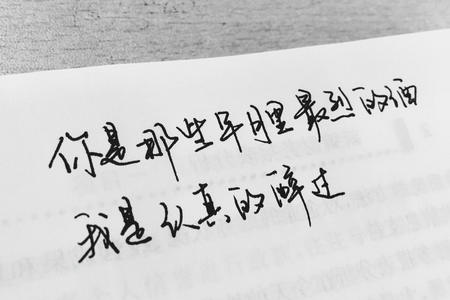 你是那些年月里最烈的酒
我是认真的醉过